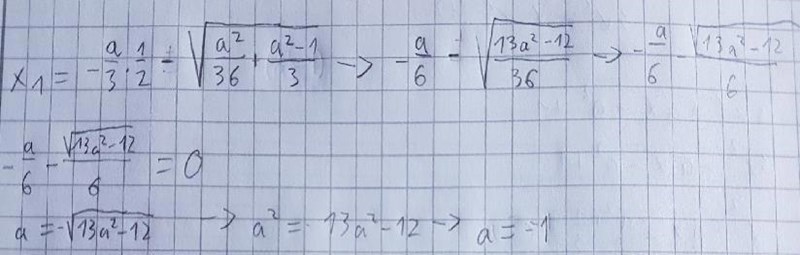 x₁ = -a/3 · 1/2 - √(a²/36 + (a²-1)/3) → -a/6 - √((13a²-12)/36) → -a/6 - √(13a²-12)/6
-a/6 - √(13a²-12)/6 = 0
a = -√(13a²-12) → a² = 13a²-12 → a = -1